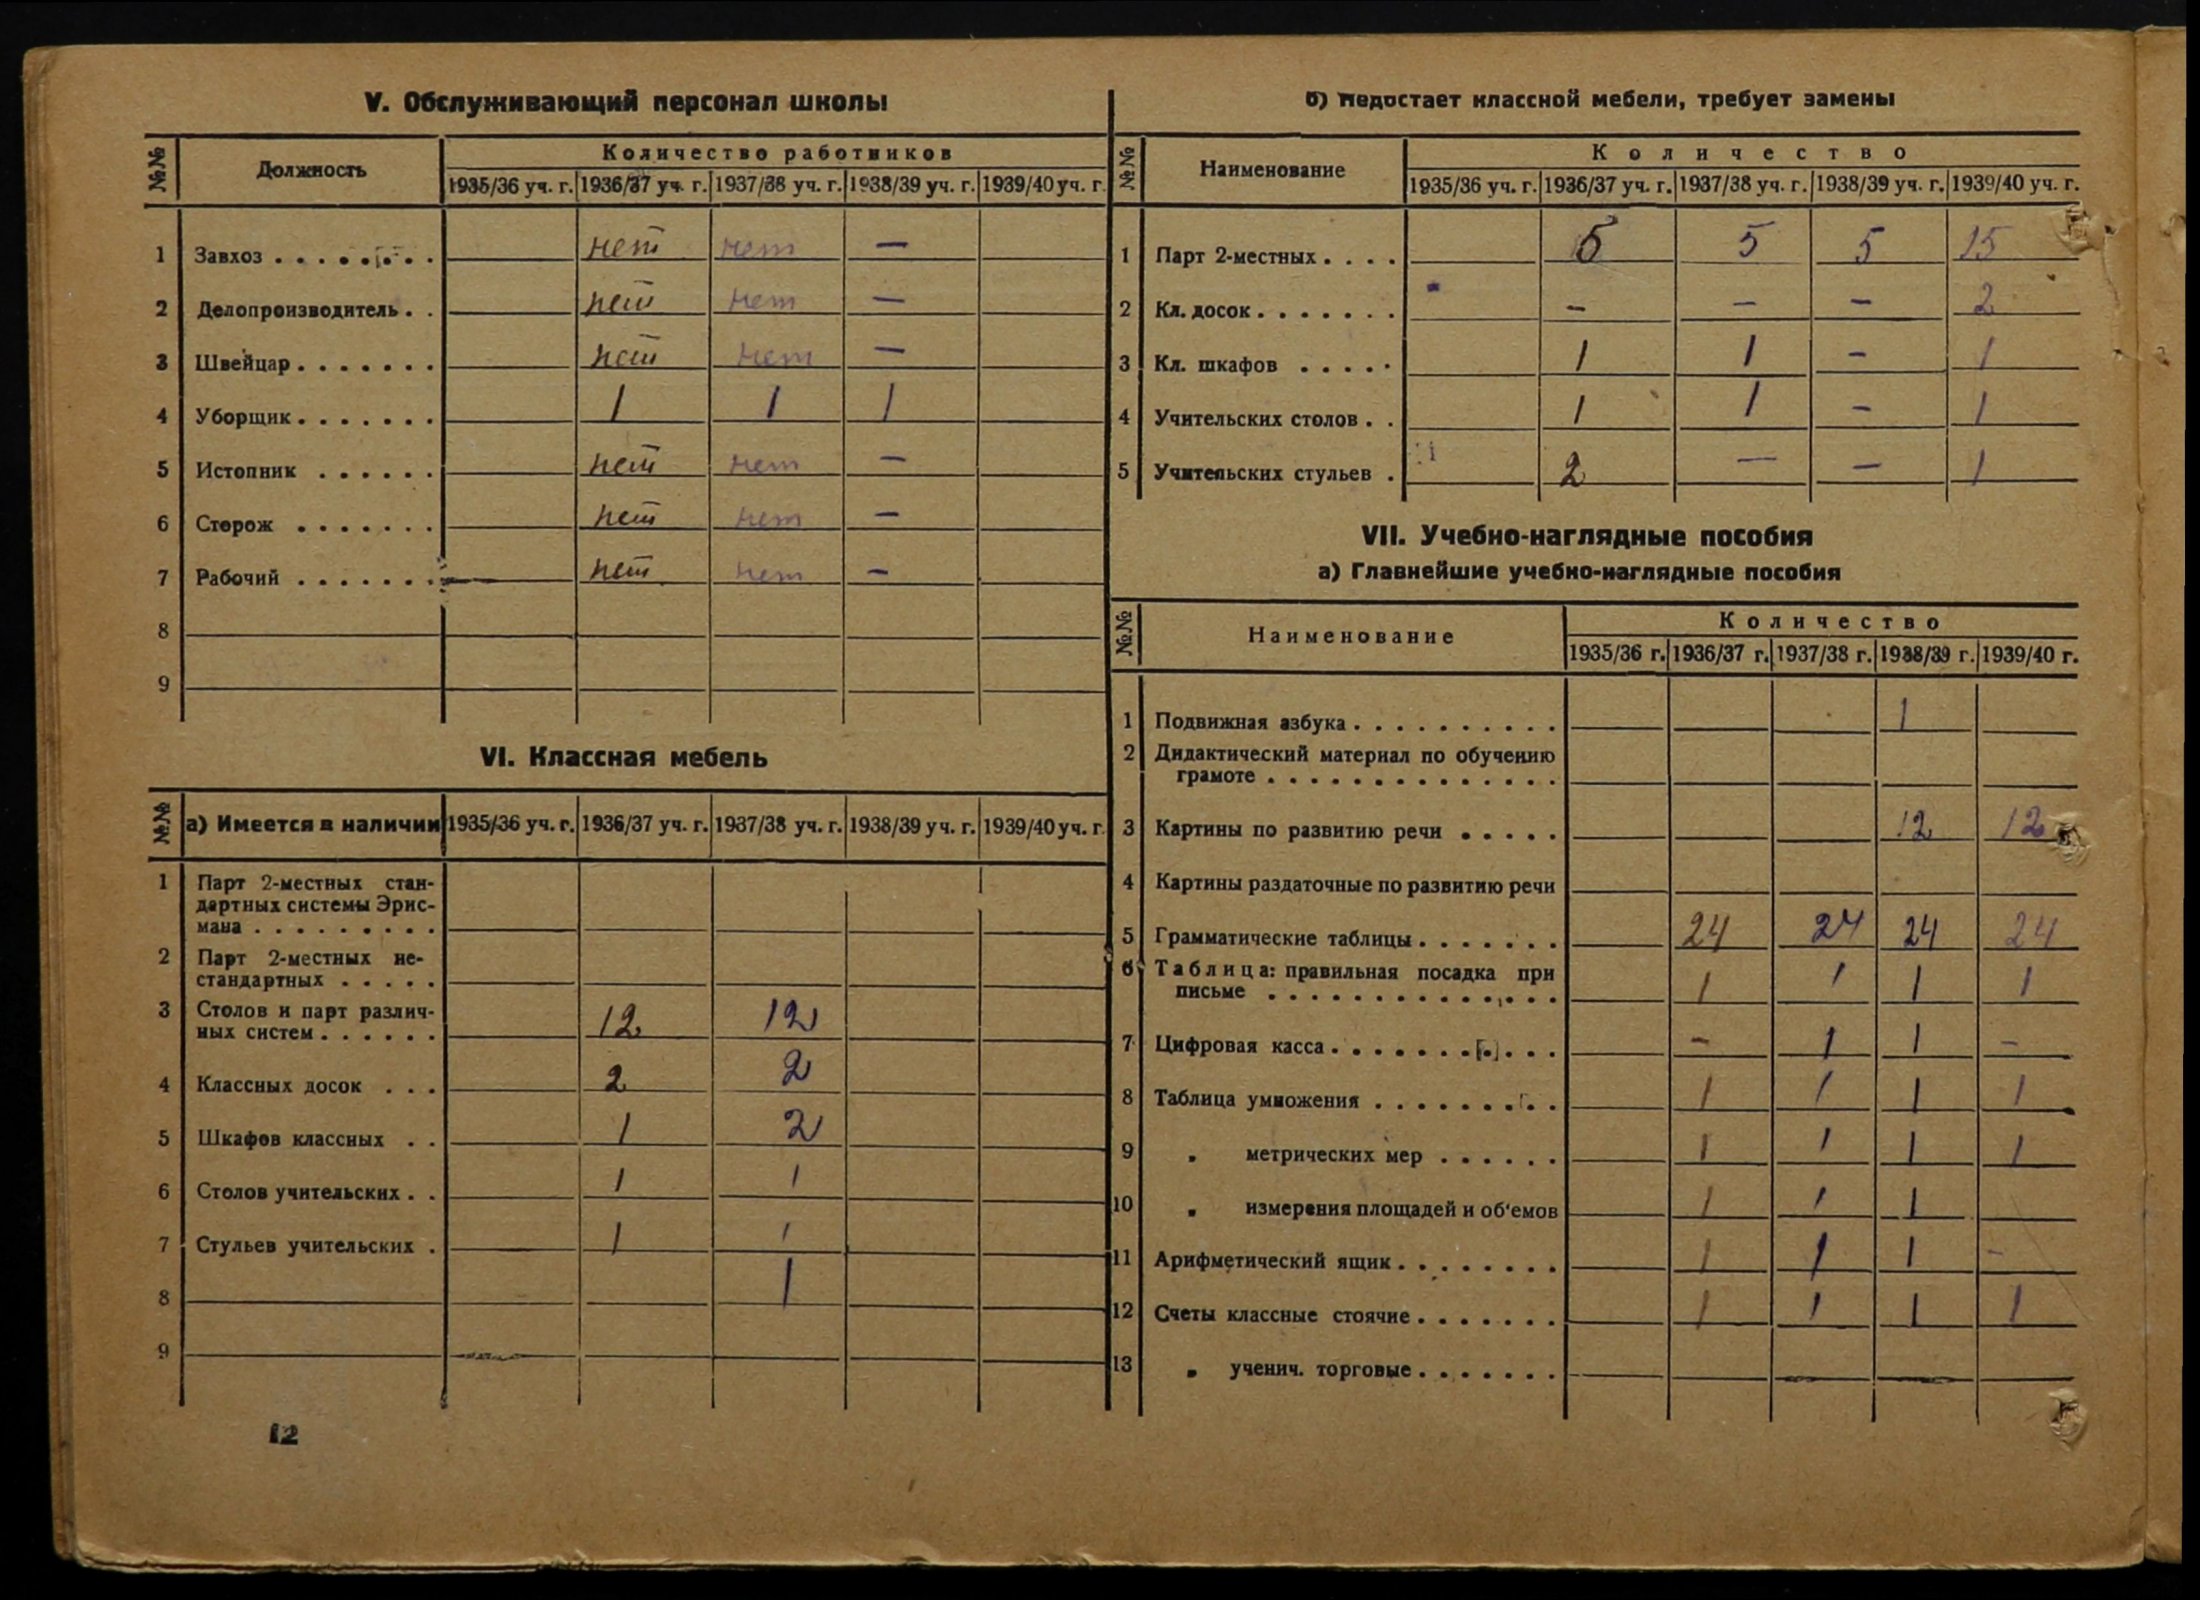 V. Обслуживающий персонал школы
№№ Должность Количество работников
1935/36 уч. г. 1936/37 уч. г. 1937/38 уч. г. 1938/39 уч. г. 1939/40 уч. г.
1 Завхоз . . . . . . . . нет нет —
2 Делопроизводитель . . нет нет —
3 Швейцар . . . . . . . нет нет —
4 Уборщик . . . . . . . 1 1 1
5 Истопник . . . . . . нет нет —
6 Сторож . . . . . . . нет нет —
7 Рабочий . . . . . . . нет нет —
8
9
VI. Классная мебель
№№ а) Имеется в наличии 1935/36 уч. г. 1936/37 уч. г. 1937/38 уч. г. 1938/39 уч. г. 1939/40 уч. г.
1 Парт 2-местных стан-
дартных системы Эрис-
мана . . . . . . . . .
2 Парт 2-местных не-
стандартных . . . . .
3 Столов и парт различ-
ных систем . . . . . . 12 12
4 Классных досок . . . 2 2
5 Шкафов классных . . 1 2
6 Столов учительских . . 1 1
7 Стульев учительских . 1 1
8 1
9
12
б) Недостает классной мебели, требует замены
№№ Наименование Количество
1935/36 уч. г. 1936/37 уч. г. 1937/38 уч. г. 1938/39 уч. г. 1939/40 уч. г.
1 Парт 2-местных . . . . 5 5 5 15
2 Кл. досок . . . . . . . – – – 2
3 Кл. шкафов . . . . . 1 1 – 1
4 Учительских столов . . 1 1 – 1
5 Учительских стульев . 2 — — 1
VII. Учебно-наглядные пособия
а) Главнейшие учебно-наглядные пособия
№№ Наименование Количество
1935/36 г. 1936/37 г. 1937/38 г. 1938/39 г. 1939/40 г.
1 Подвижная азбука . . . . . . . . . . 1
2 Дидактический материал по обучению
грамоте . . . . . . . . . . . . . .
3 Картины по развитию речи . . . . . 12 12
4 Картины раздаточные по развитию речи
5 Грамматические таблицы . . . . . . . 24 24 24 24
6 Таблица: правильная посадка при
письме . . . . . . . . . . . . . . 1 1 1 1
7 Цифровая касса . . . . . . . . . . . – 1 1 –
8 Таблица умножения . . . . . . . . . 1 1 1 1
9 „ метрических мер . . . . . . 1 1 1 1
10 „ измерения площадей и об‘емов 1 1 1
11 Арифметический ящик . . . . . . . . 1 1 1 –
12 Счеты классные стоячие . . . . . . . 1 1 1 1
13 „ ученич. торговые . . . . . . .